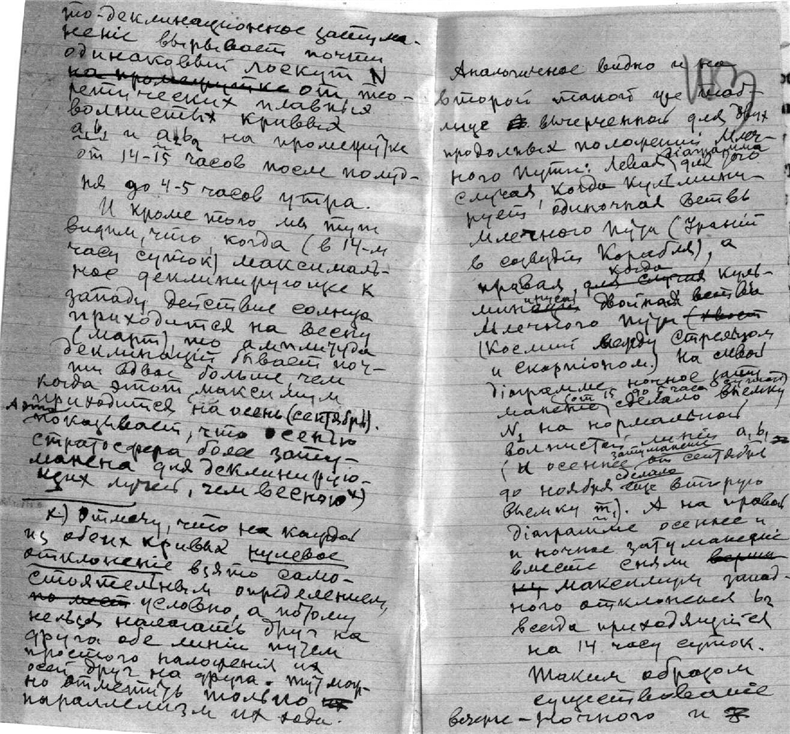 то-деклинационное затума-
неніе вырывает почти
одинаковый лоскут N
на промежутке от тео-
ретических плавных
волнистых кривых
a₁b₁ и a₂b₂ на промежутке
от 14-15 часов после полуд-
ня до 4-5 часов утра.
И кроме того мы тут
видим, что, когда (в 14-м
часу суток) максималь-
ное деклинирующее к
западу действие солнца
приходится на весну
(март) то амплитуда
деклинаціи бывает поч-
ти вдвое больше, чем
когда этот максимум
приходится на осень (сентябрь).
А это
показывает, что осенью
стратосфера более зату-
манена для деклинирую-
щих лучей, чем весною x)
x) Отмечу, что на каждой
из обеих кривых нулевое
отклонение взято само-
стоятельным определением,
условно, а потому
нельзя налагать друг на
друга обе линіи путем
простого наложения их
осей друг на друга. Тут мож-
но отметить только
параллелизм их хода.
113
Аналогичное видно и на
второй такой же таб-
лице вычерченной для двух
продольных положений Млеч-
ного Пути: Левая діаграмма для того
случая когда кульмини-
рует одиночная ветвь
Млечного Пути (Гранит
в созвездіи Корабля), а
правая, когда куль-
минирует двойная ветвь
Млечного Пути
(Космит между Стрельцом
и Скорпіоном.) На левой
діаграмме ночное зату-
манение (от 15 до 5 часов) сделало выемку
N₂ на нормальной
волнистой линіи a₁b₁
(и осеннее затуманеніе от сентября
до ноября сделало еще вторую
выемку m₁). А на правой
діаграмме осеннее и
и ночное затуманеніе
вместе сняли
максимум запад-
ного отклонения b₂
всегда приходящійся
на 14 часу суток.
Таким образом
существование
вечерне-ночного и